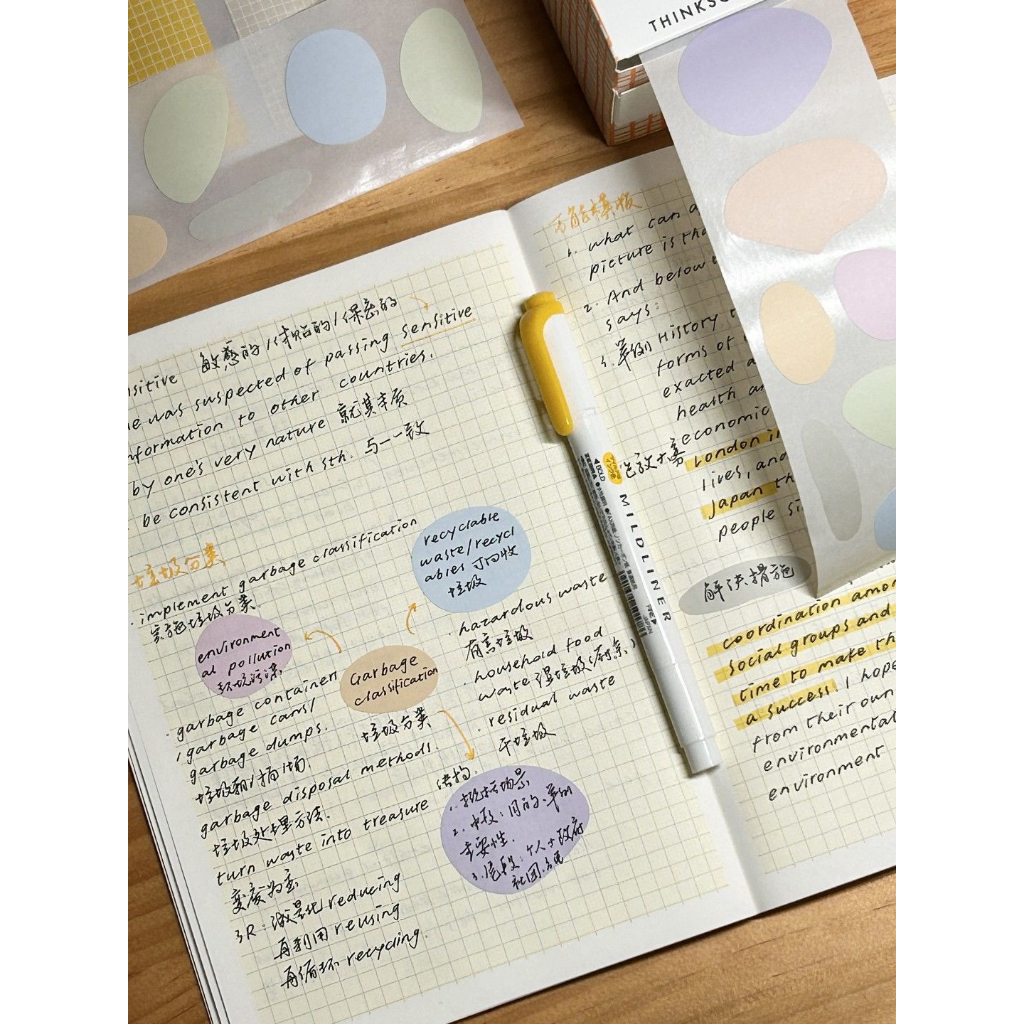 THINKSC
sensitive 敏感的/体贴的/保密的
e was suspected of passing sensitive
nformation to other countries.
by one's very nature 就其本质
be consistent with sth. 与一一致
垃圾分类
· implement garbage classification
实施垃圾分类
environment
al pollution
环境污染
· garbage container
/garbage cans/
garbage dumps.
垃圾箱/桶/场
garbage disposal methods.
垃圾处理方法.
turn waste into treasure
变废为宝
3R: 减量化 reducing
再利用 reusing
再循环 recycling.
recyclable
waste/recycl
ables 可回收
垃圾
Garbage
classification
垃圾分类
· hazardous waste
有害垃圾
· household food
waste 湿垃圾(厨余)
· residual waste
干垃圾
结构
1. 描大场景
2. 中段: 目的、举例
重要性.
3. 尾段: 个人+政府
社团.
万能模板
1. what can
picture is tha
2. And below
says:
3. 举例 History
forms of
exacted a
health an
economic
London in
lives, and
Japan th
people si
BOLD
MILDLINER
解决措施
coordination amo
social groups and
time to make th
a success. I hope
from their own
environmental
environment